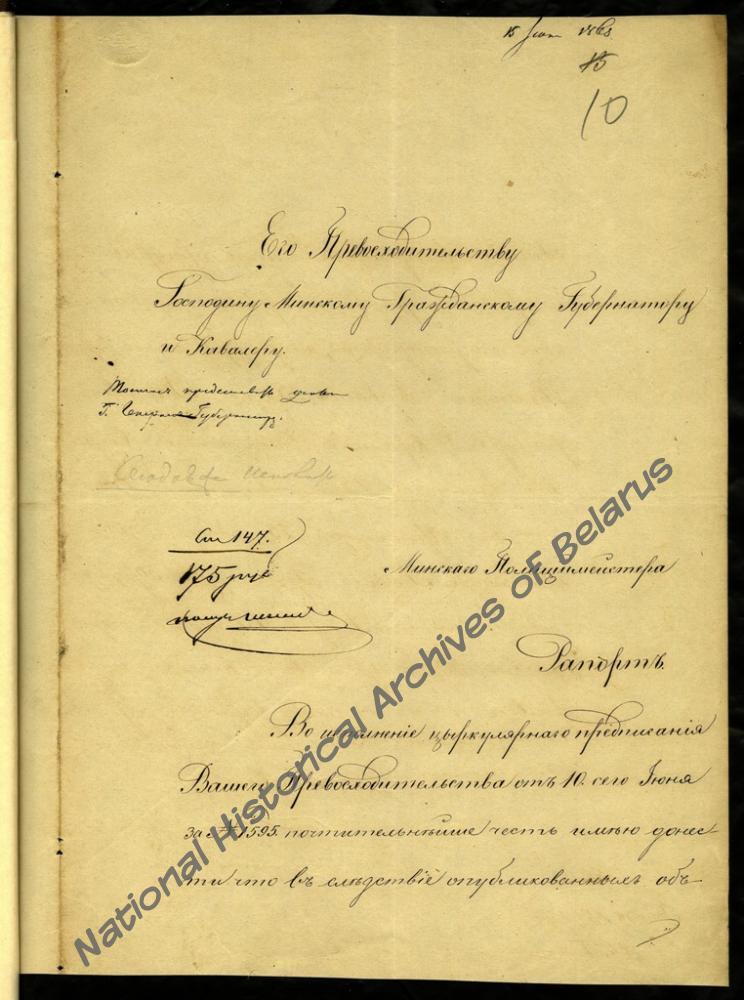 15 1863
15
10
Его Превосходительству
Господину Минскому Гражданскому Губернатору
и Кавалеру.
Г. Губернатору.
Ст 147.
175 руб
Минскаго Полиціймейстера
Рапортъ.
Во исполненіе цыркулярнаго предписанія
Вашего Превосходительства отъ 10. сего Іюня
за № 1595. почтительнѣйше честь имѣю донес-
ти что въ слѣдствіе опубликованныхъ объ-
National Historical Archives of Belarus